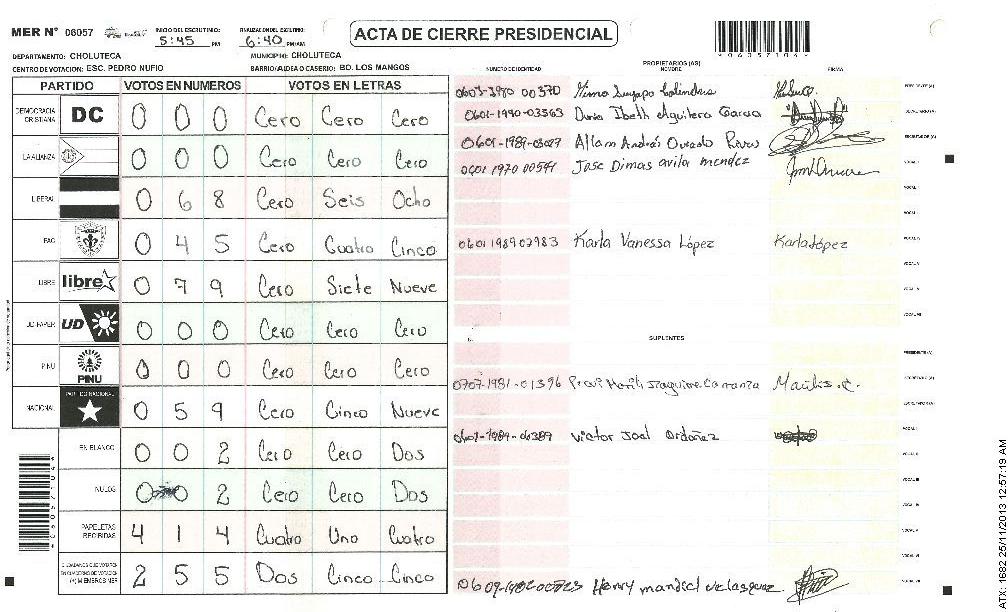 MER Nº 06057
INICIO DEL ESCRUTINIO: 5:45 PM
FINALIZACION DEL ESCRUTINIO: 6:40 PM/AM
ACTA DE CIERRE PRESIDENCIAL
*06057104*
DEPARTAMENTO: CHOLUTECA
MUNICIPIO: CHOLUTECA
CENTRO DE VOTACION: ESC. PEDRO NUFIO
BARRIO/ALDEA O CASERIO: BO. LOS MANGOS
PARTIDO VOTOS EN NUMEROS VOTOS EN LETRAS
NUMERO DE IDENTIDAD PROPIETARIOS (AS) NOMBRE FIRMA
DEMOCRACIA CRISTIANA DC 0 0 0 Cero Cero Cero
LA ALIANZA 0 0 0 Cero Cero Cero
LIBERAL 0 6 8 Cero Seis Ocho
PAC 0 4 5 Cero Cuatro Cinco
LIBRE libre 0 7 9 Cero Siete Nueve
UD-FAPER UD 0 0 0 Cero Cero Cero
PINU PINU 0 0 0 Cero Cero Cero
NACIONAL PARTIDO NACIONAL 0 5 9 Cero Cinco Nueve
EN BLANCO 0 0 2 Cero Cero Dos
NULOS 0 0 2 Cero Cero Dos
PAPELETAS RECIBIDAS 4 1 4 Cuatro Uno Cuatro
2 5 5 Dos Cinco Cinco
0603-1980 00370 PRESIDENTE(A)
0601-1990-03563 Dunia Ibeth Aguilera Garcia SECRETARIO(A)
0601-1989-03027 Allam Andrés Oviedo ESCRUTADOR(A)
0601 1970 00541 Jose Dimas avila mendez VOCAL I
0601 1989 02983 Karla Vanessa López Karla López
SUPLENTES
PRESIDENTE(A)
0707-1981-01396 SECRETARIO(A)
0601-1989-00389 victor Joel Ordoñez VOCAL I
Henry velasquez
ATX: 1682 25/11/2013 12:57:19 AM